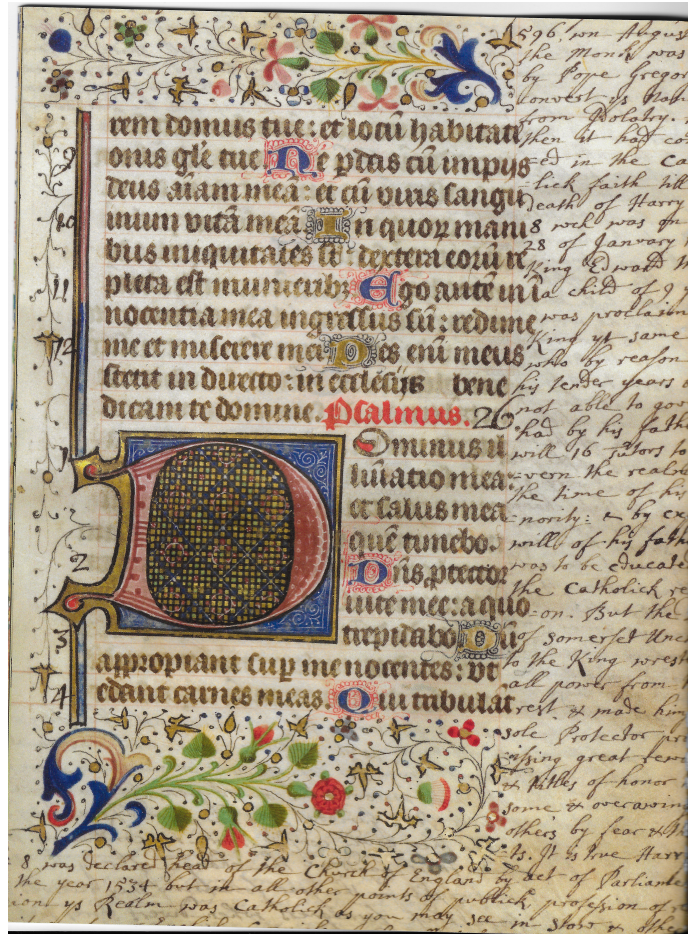 rem domus tue: et locu habitati
9 onis gle tue Ne pdas cu impijs
deus aiam mea: et cu viris sangui
10 inum vita mea In quor mani
bus iniquitates st: dextera eoru re
11 pleta est muneribz Ego aute in i
nocentia mea ingressus su: redime
12 me et miserere mei Pes eni meus
stetit in directo: in ecclesijs bene
dicam te domine. Psalmus. 26
1 Dominus il
luminatio mea
et salus mea
que timebo.
2 Dns ptector
vite mee: a quo
3 trepidabo Du
appropiant sup me nocentes: ut
4 edant carnes meas. Qui tribulat
596 wn August
the Monk was
by Pope Gregor
convert ys Nati
from Idolatry.
then it had co
ed in the Ca
lick faith till
death of Harry
8 wch was on
28 of January
King Edward
a child of 9 y
was proclaim
King ye same
who by reason
his tender years
not able to gov
had by his fath
will 16 tutors to
vern the realm
the time of his
nority: & by ex
will of his fath
was to be educate
the Catholick re
on. But the
of somerset Unc
to the King wrest
all power from
rest & made him
sole Protector pro
ssing great rew
& tittles of honor
some & overawin
others by fear &
ts. It is true Harr
8 was declared head of the Church of England by act of Parliame
the year 1534 but in all other points of publick profession of
ion ys Realm was Catholick as you may see in Stow & othe